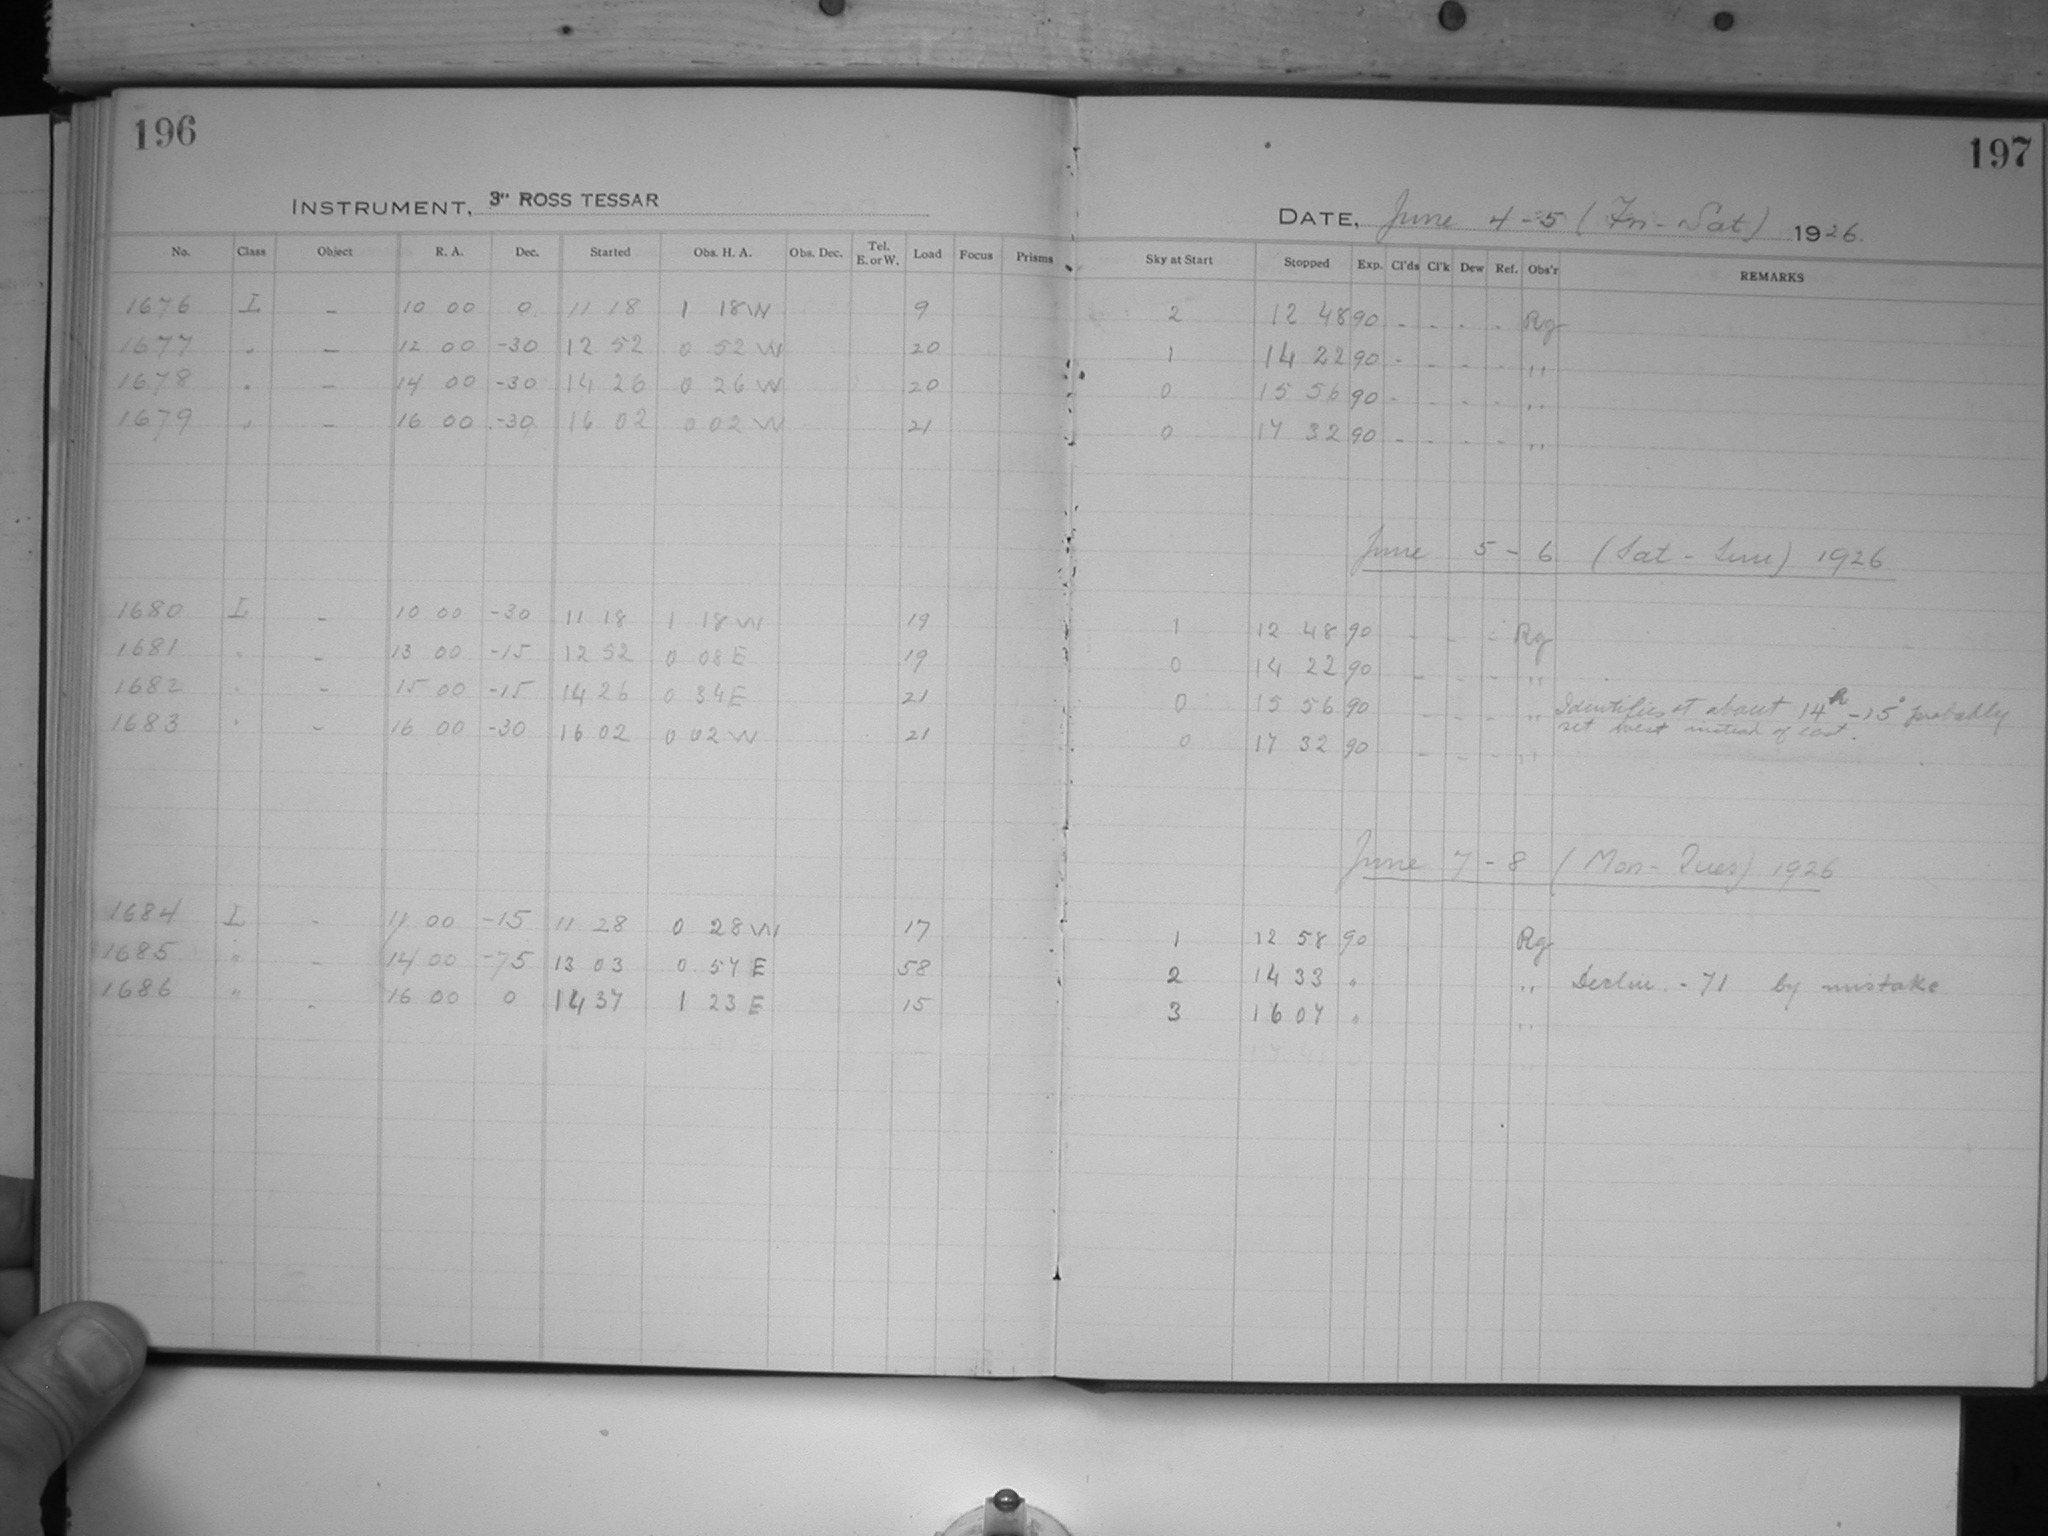 196
INSTRUMENT, 3" ROSS TESSAR
No. Class Object R. A. Dec. Started Obs. H. A. Obs. Dec. Tel. E. or W. Load Focus Prisms
1676 I - 10 00 0 11 18 1 18 W 9
1677 " - 12 00 -30 12 52 0 52 W 20
1678 " - 14 00 -30 14 26 0 26 W 20
1679 " - 16 00 -30 16 02 0 02 W 21
1680 I - 10 00 -30 11 18 1 18 W 19
1681 " - 13 00 -15 12 52 0 08 E 19
1682 " - 15 00 -15 14 26 0 34 E 21
1683 " - 16 00 -30 16 02 0 02 W 21
1684 I - 11 00 -15 11 28 0 28 W 17
1685 " - 14 00 -75 13 03 0 57 E 58
1686 " - 16 00 0 14 37 1 23 E 15
197
DATE, June 4-5 (Fri-Sat) 1926.
Sky at Start Stopped Exp. Cl'ds Cl'k Dew Ref. Obs'r REMARKS
2 12 48 90 - - - - Rg
1 14 22 90 - - - - "
0 15 56 90 - - - - "
0 17 32 90 - - - - "
June 5-6 (Sat-Sun) 1926
1 12 48 90 - - - Rg
0 14 22 90 - - - "
0 15 56 90 - - - " Identifies at about 14h -15° probably
set west instead of east.
0 17 32 90 - - - "
June 7-8 (Mon-Tues) 1926
1 12 58 90 Rg
2 14 33 " " Declin. -71 by mistake
3 16 07 " "